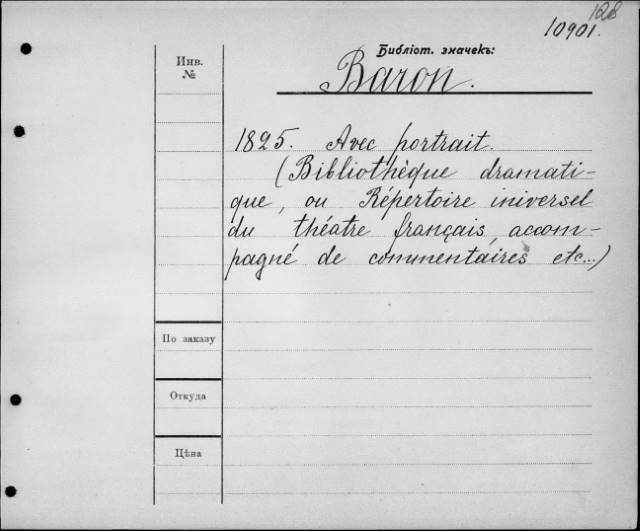 128
10901.
Библіот. значекъ:
Baron.
Инв.
№
1825. Avec portrait.
(Bibliothèque dramati-
que, ou Répertoire iniversel
du théatre français, accom-
pagné de commentaires etc...)
По заказу
Откуда
Цѣна